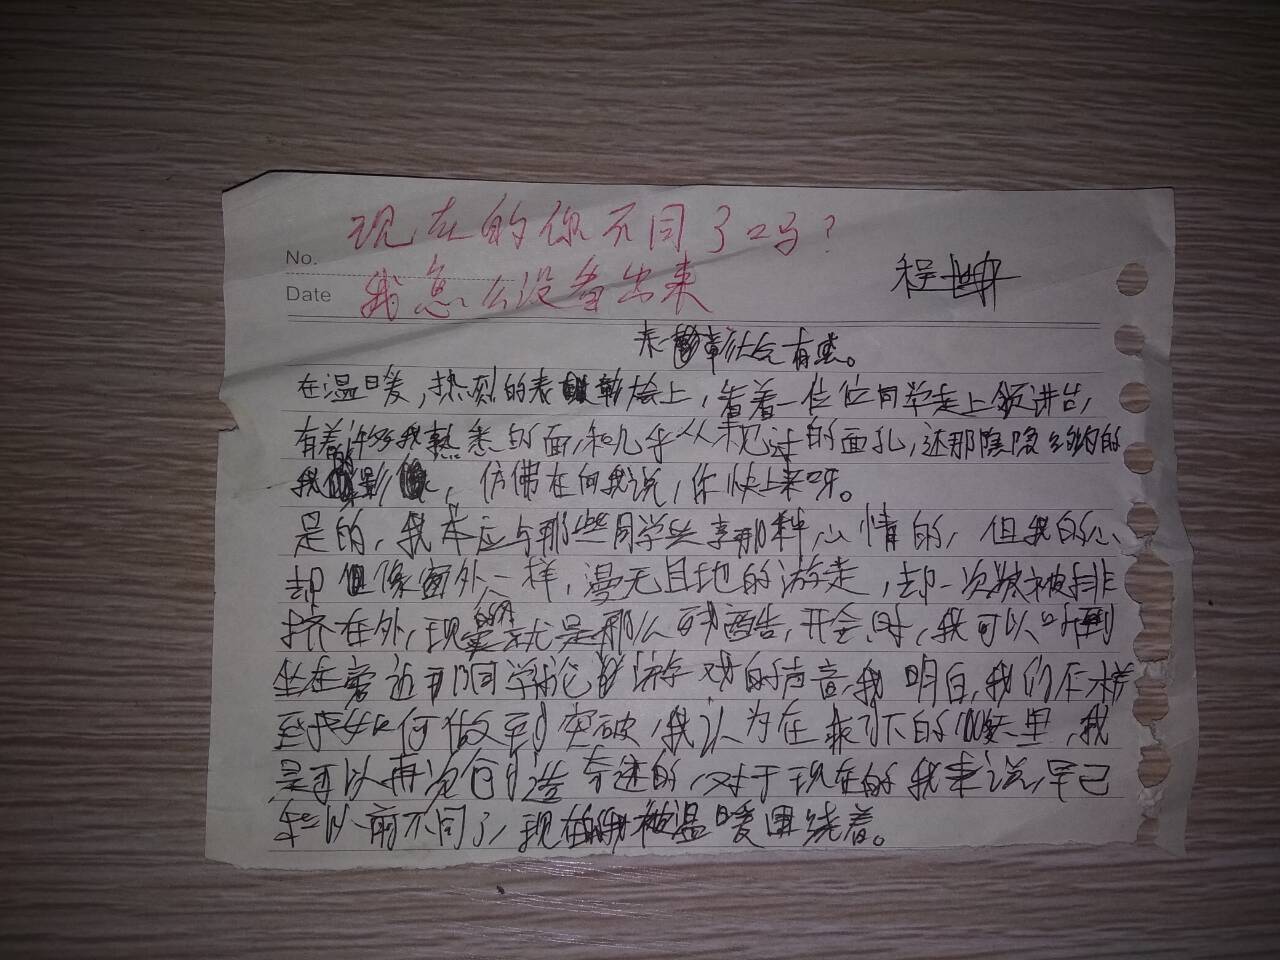 现在的你不同了吗?
No.
我怎么没看出来
Date
程坤
表彰社会有感。
在温暖,热烈的表彰会上,看着一位位同学走上领讲台,
有着许多我熟悉的面,和几乎从未见过的面孔,还那隐隐约约的
我的影,仿佛在向我说,你快上来呀。
是的,我本应与那些同学共享那种心情的,但我的心
却但像窗外一样,漫无目地的游走,却一次被排
挤在外,现实就是那么的残酷,开会时,我可以听到
坐在旁边那同学论游戏的声音,我明白,我们怎样
如何做到突破,我认为在剩下的里,我
是可以再次创造奇迹的,对于现在的我来说,早已
和以前不同了,现在的我被温暖围绕着。